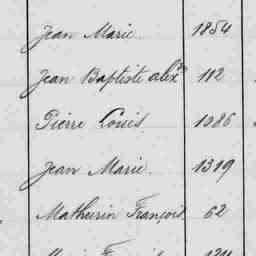 Jean Marie 1854
Jean Baptiste Alexre 112
Pierre Louis 1086
Jean Marie 1319
Mathurin François 62